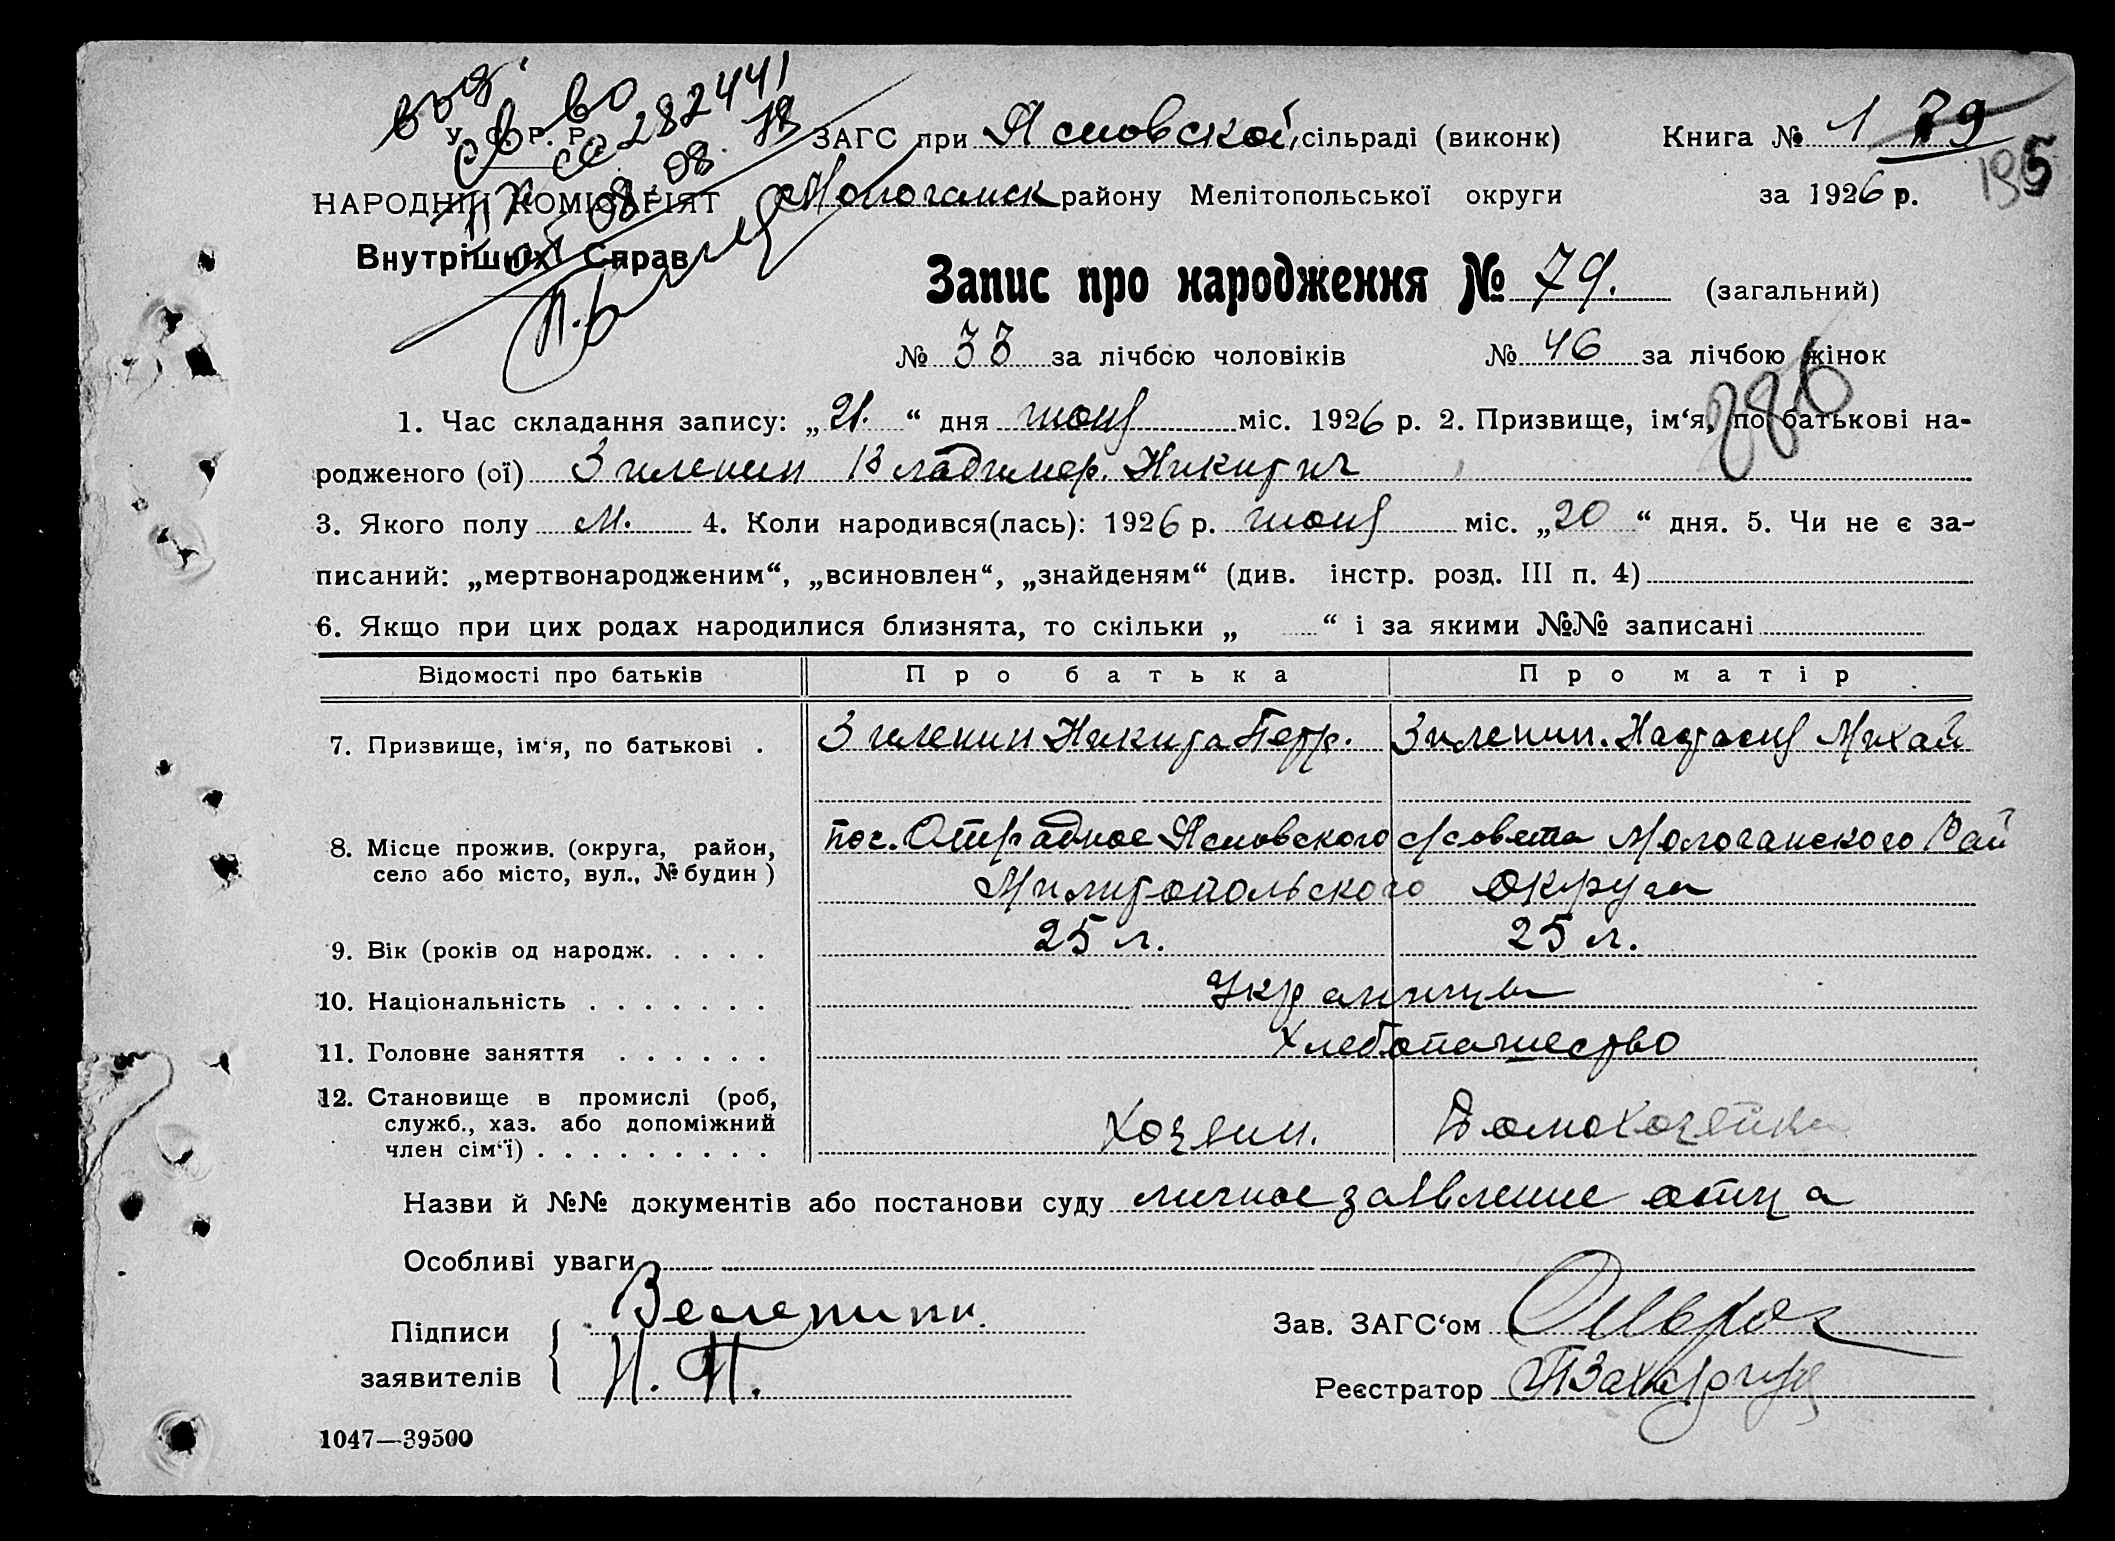 У. С. Р. Р.
ЗАГС при Ясновской сільраді (виконк)
Книга № 1 79
195
НАРОДНІЙ КОМІСАРІЯТ
Молочанск району Мелітопольської округи
за 1926 р.
Внутрішніх Справ
282441
Запис про народження № 79. (загальний)
№ 33 за лічбою чоловіків № 46 за лічбою жінок
286
1. Час складання запису: „21.“ дня июня міс. 1926 р. 2. Призвище, ім‘я, по батькові на-
родженого (ої) Зиленин Владимер. Никитич
3. Якого полу М. 4. Коли народився(лась): 1926 р. июня міс. „20“ дня. 5. Чи не є за-
писаний: „мертвонародженим“, „всиновлен“, „знайденям“ (див. інстр. розд. III п. 4)
6. Якщо при цих родах народилися близнята, то скільки „ “ і за якими №№ записані
Відомості про батьків Про батька Про матір
7. Призвище, ім‘я, по батькові . Зиленин Никита Петр. Зиленин. Настасия Михай
8. Місце прожив. (округа, район, пос. Отрадное Ясновского с/совета Молочанского Рай
село або місто, вул., № будин) Милитопольского округа
9. Вік (років од народж. . . . . 25 л. 25 л.
10. Національність . . . . . . . Украинцы
11. Головне заняття . . . . . . Хлебопашество
12. Становище в промислі (роб,
служб., хаз. або допоміжний Хозяин. Домохозяйка
член сім‘ї) . . . . . . . . .
Назви й №№ документів або постанови суду личное заявление отца
Особливі уваги
Підписи
Зав. ЗАГС‘ом
заявителів Н. П.
Реєстратор
1047—39500